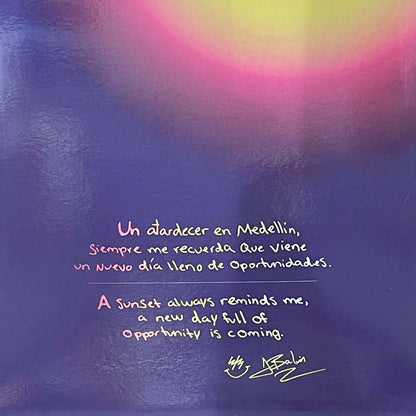 Un atardecer en Medellín,
siempre me recuerda que viene
un nuevo día lleno de oportunidades.
A sunset always reminds me,
a new day full of
opportunity is coming.
J Balvin